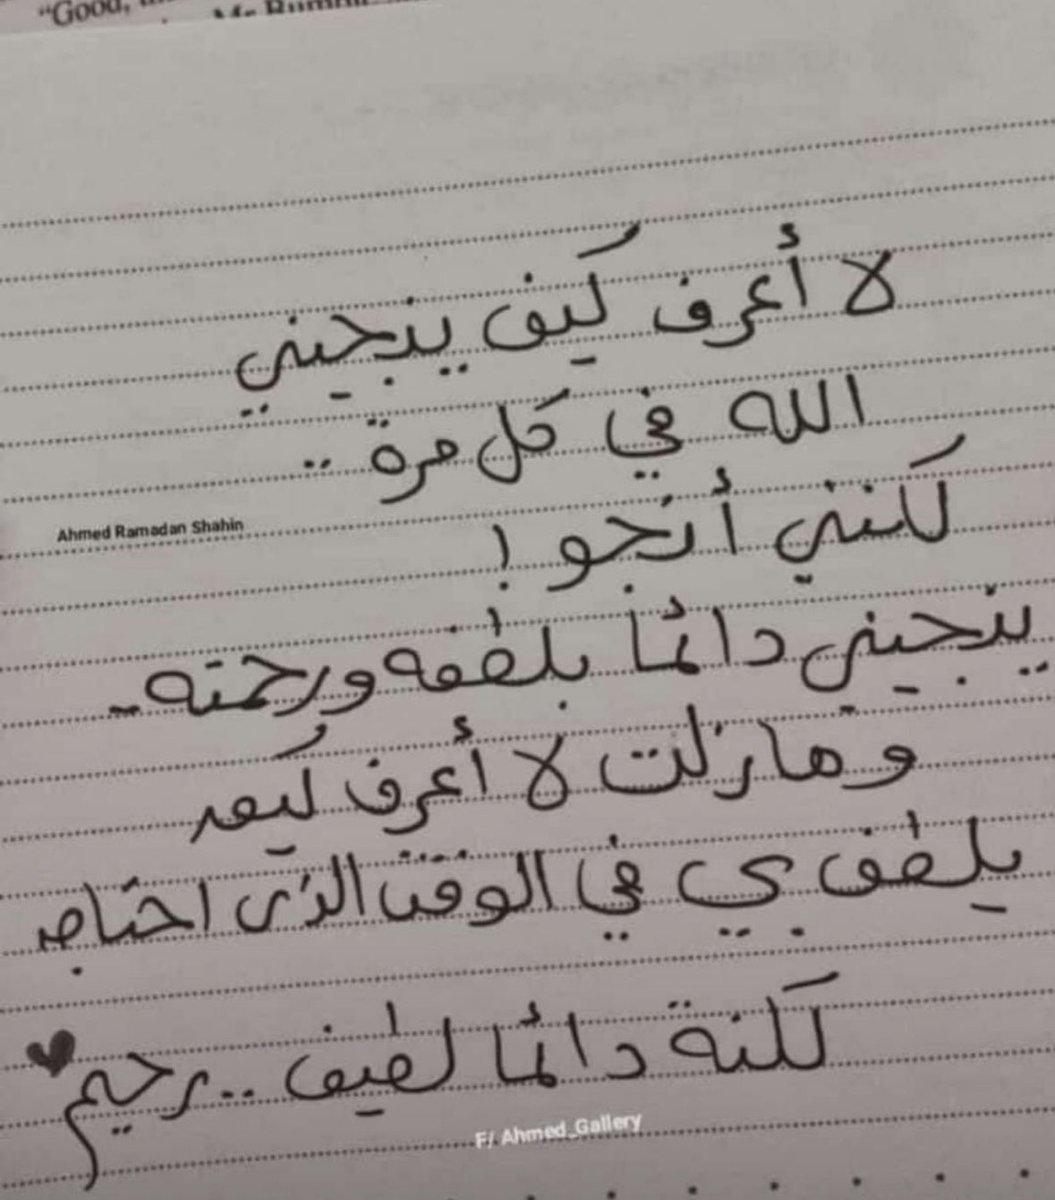 "Good,
لا أعرف كيف ينجيني
الله في كل مرة ..
لكنني أنجو !
Ahmed Ramadan Shahin
ينجيني دائمًا بلطفه ورحمته..
ومازلت لا أعرف كيف
يلطف بي في الوقت الذي احتاج
لكنة دائمًا لطيف .. رحيم ♥
F/ Ahmed_Gallery